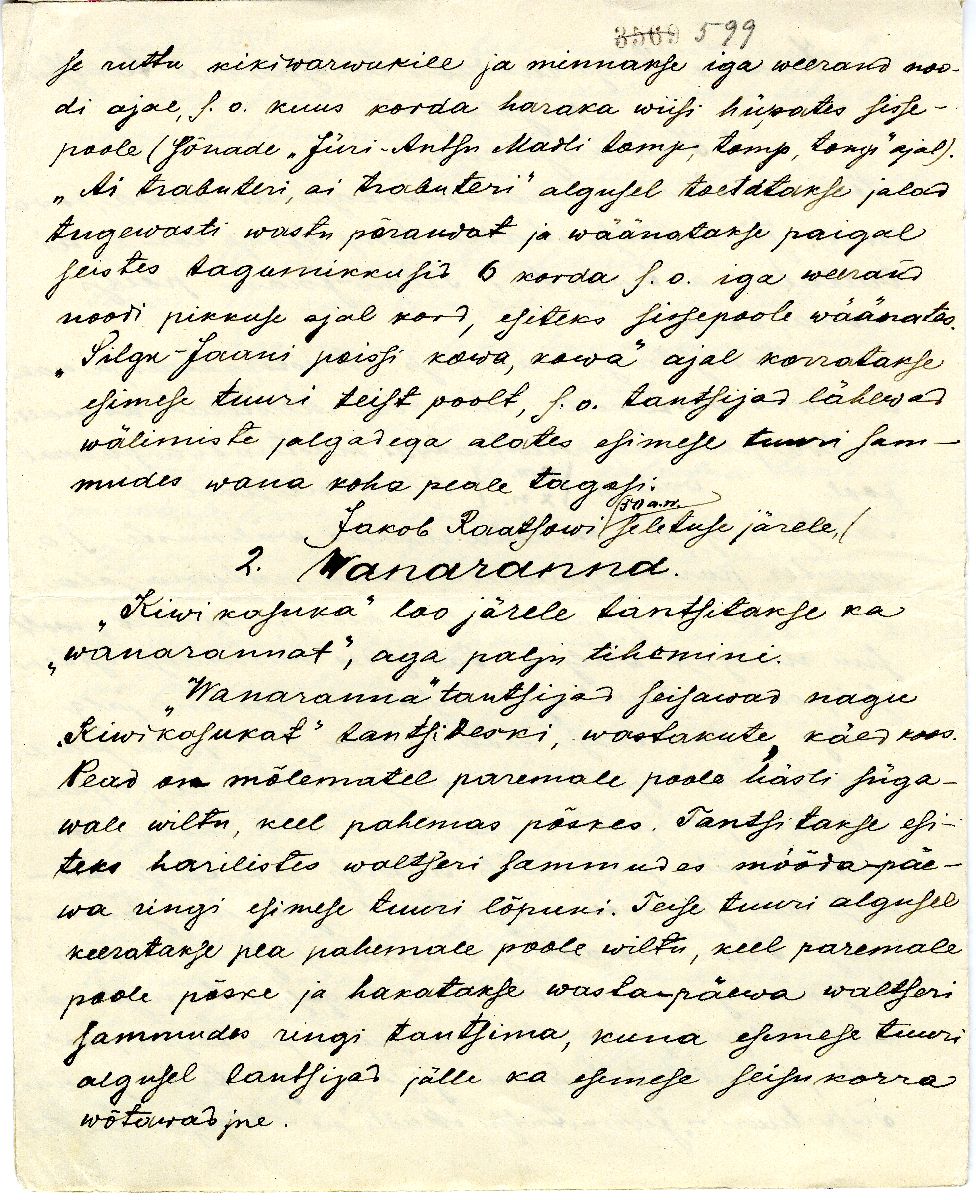 3569 599
se ruttu kikiwarwukile ja minnakse iga weerand noo-
di ajal, s.o. kuus korda haraka wiisi hüpates sisse-
poole (sõnade „Jüri-Antsu Madli tomp, tomp, tomp" ajal).
„Ai trabuteri, ai trabuteri" algusel toetatakse jalad
tugewasti wastu põrandat ja wäänatakse paigal
seistes tagumikkusid 6 korda s.o. iga weerand
noodi pikkuse ajal kord, esiteks sissepoole wäänates.
„Silgu-Jaani poissi kowa, kowa" ajal korratakse
esimese tuuri teist poolt, s.o. tantsijad lähewad
wälimiste jalgadega alates esimese tuuri sam-
mudes wana koha peale tagasi.
Jakob Raatsowi (50 a.w.) seletuse järele,
2. Wanaranna.
„Kiwikasuka" loo järele tantsitakse ka
„wanarannat", aga palju tihemini.
„Wanaranna" tantsijad seisawad nagu
„Kiwikasukat" tantsideski, wastakute, käed koos.
Pead on mõlematel paremale poole hästi süga-
wale wiltu, keel pahemas põskes. Tantsitakse esi-
teks harilistes waltseri sammudes mööda-päe-
wa ringi esimese tuuri lõpuni. Teise tuuri algusel
keeratakse pea pahemale poole wiltu, keel paremale
poole põske ja hakatakse wasta-päewa waltseri
sammudes ringi tantsima, kuna esimese tuuri
algusel tantsijad jälle ka esimese seisukorra
wõtawad jne.